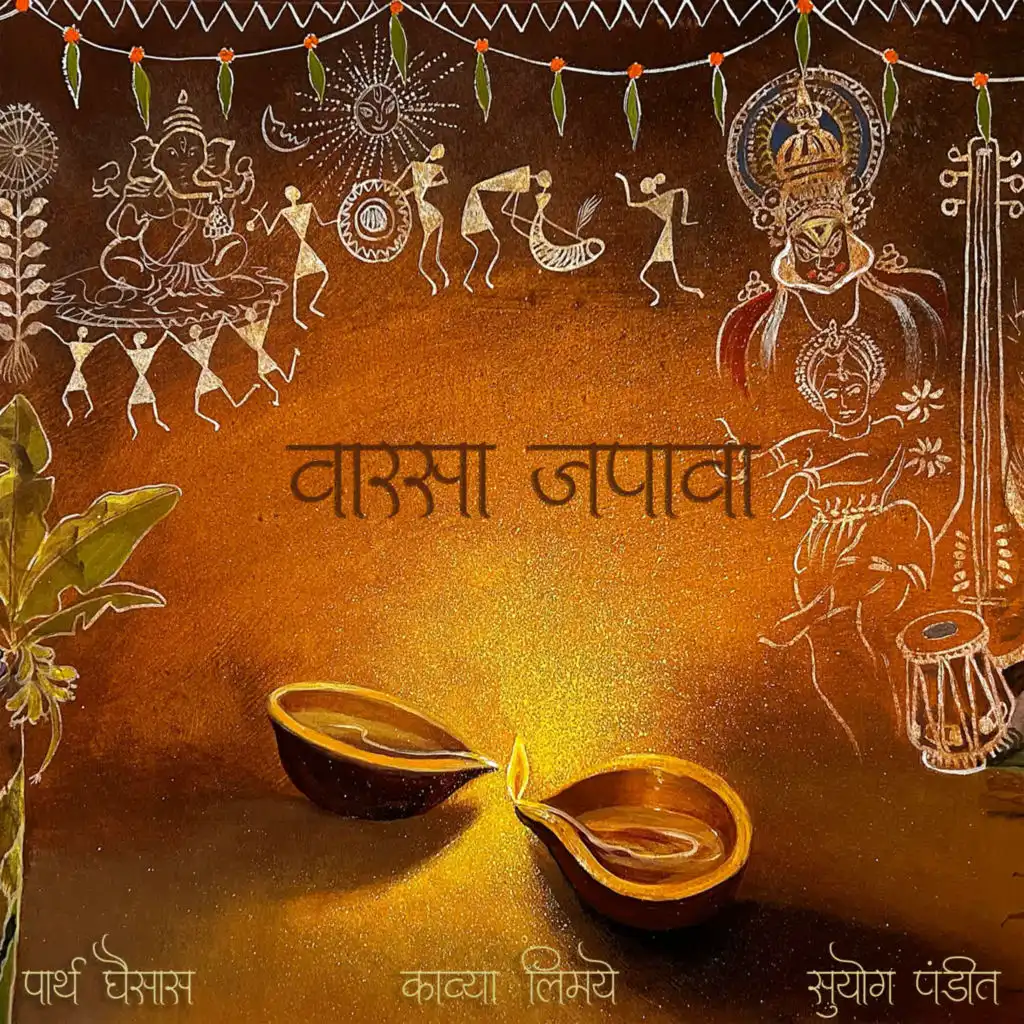 वारसा जपावा
पार्थ घैसास काव्या लिमये सुयोग पंडीत